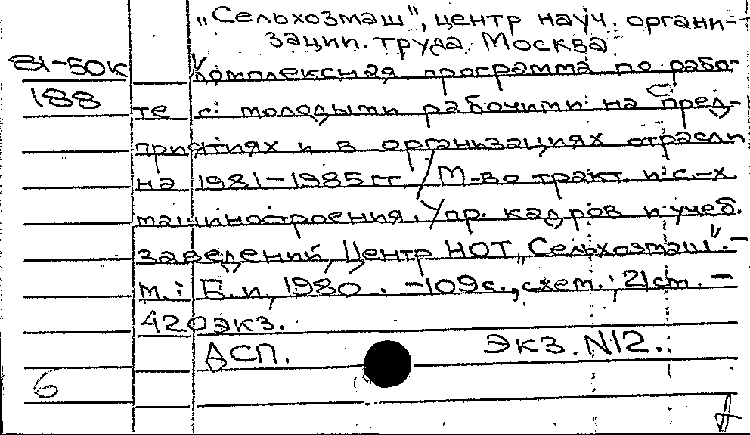 „Сельхозмаш", центр науч. органи-
зации. труда. Москва
81-50к Комплексная программа по рабо-
188 те с молодыми рабочими на пред-
приятиях и в организациях отрасли
на 1981-1985 гг. / М-во тракт. и с.-х.
машиностроения. Упр. кадров и учеб.
заведений, Центр НОТ „Сельхозмаш". -
М.: Б.и, 1980. - 109 с., схем.; 21 см. -
420 экз.
АСП. Экз. N12.
6